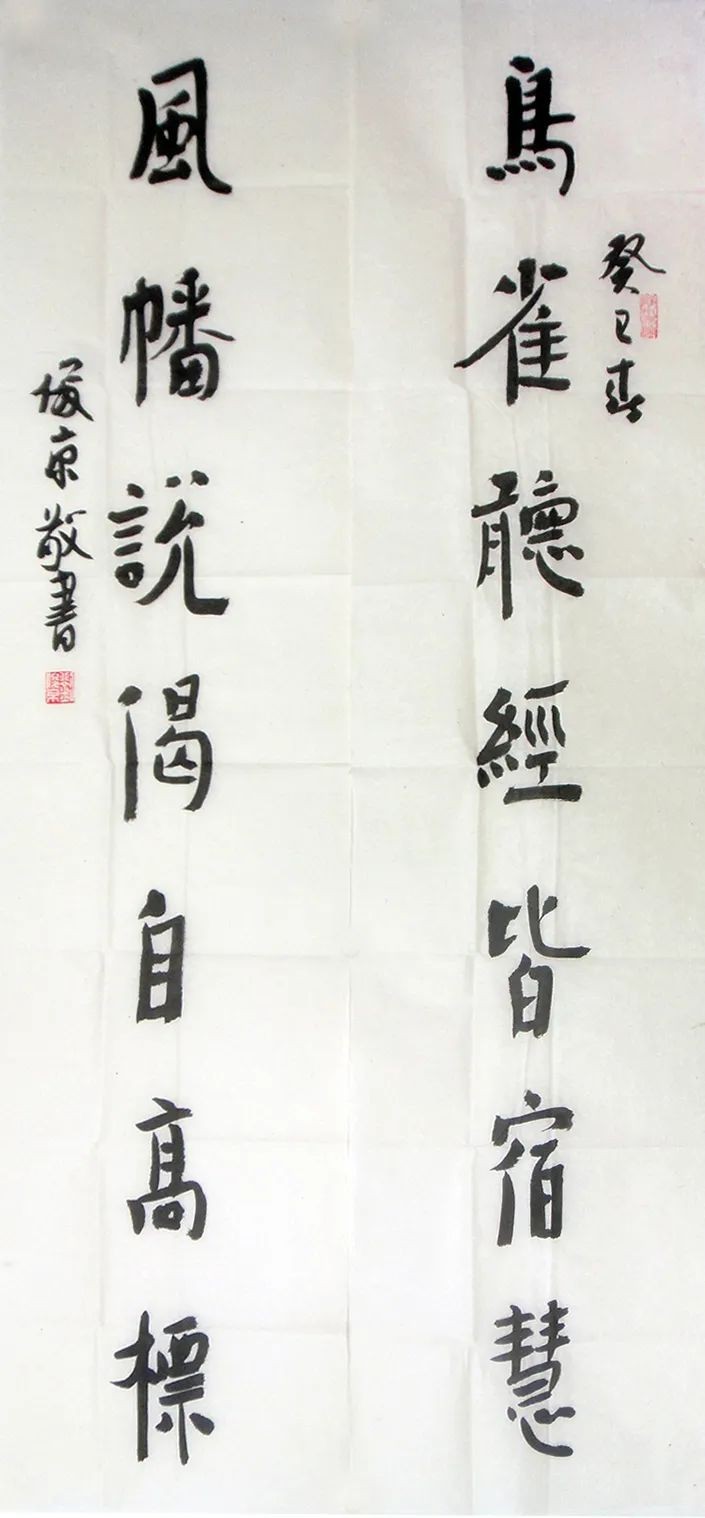 癸巳春
鳥雀聽經皆宿慧
風幡說偈自高標
俊京敬書